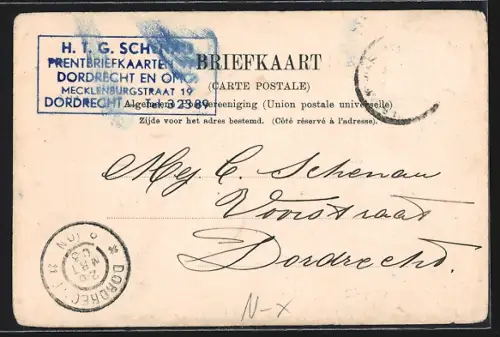 H. T. G.
PRENTBRIEFKAARTEN
DORDRECHT EN
MECKLENBURGSTRAAT 19
DORDRECHT - Tel. 32389
BRIEFKAART
(CARTE POSTALE)
Algemeene Postvereeniging (Union postale universelle)
Zijde voor het adres bestemd. (Côté réservé à l'adresse).
Mej C. Schenau
Voorstraat
Dordrecht.
DORDRECHT
MRT
N-X